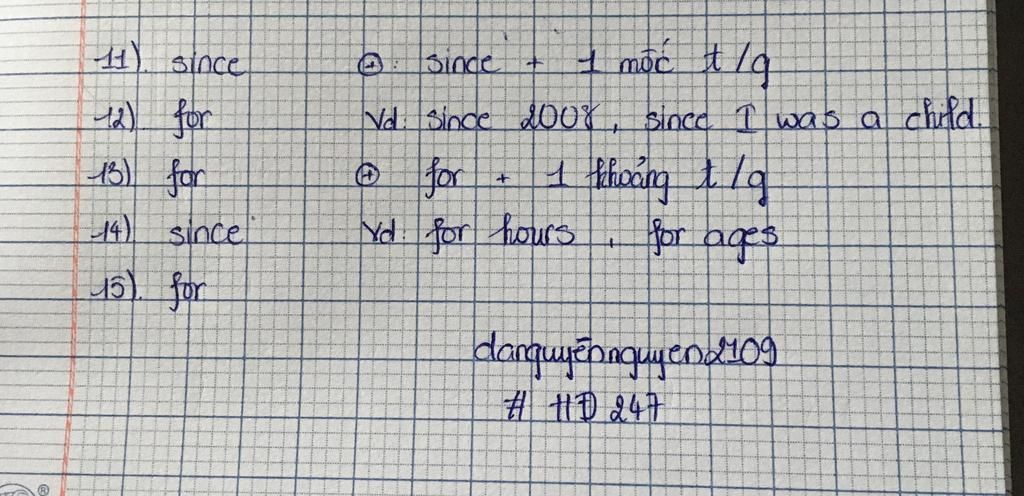 11). since ⊕: since + 1 mốc t/g
12) for Vd: since 2008, since I was a child.
13) for ⊕ for + 1 khoảng t/g
14) since Vd: for hours, for ages
15). for
danguyễnnguyen2109
# HĐ 247
®